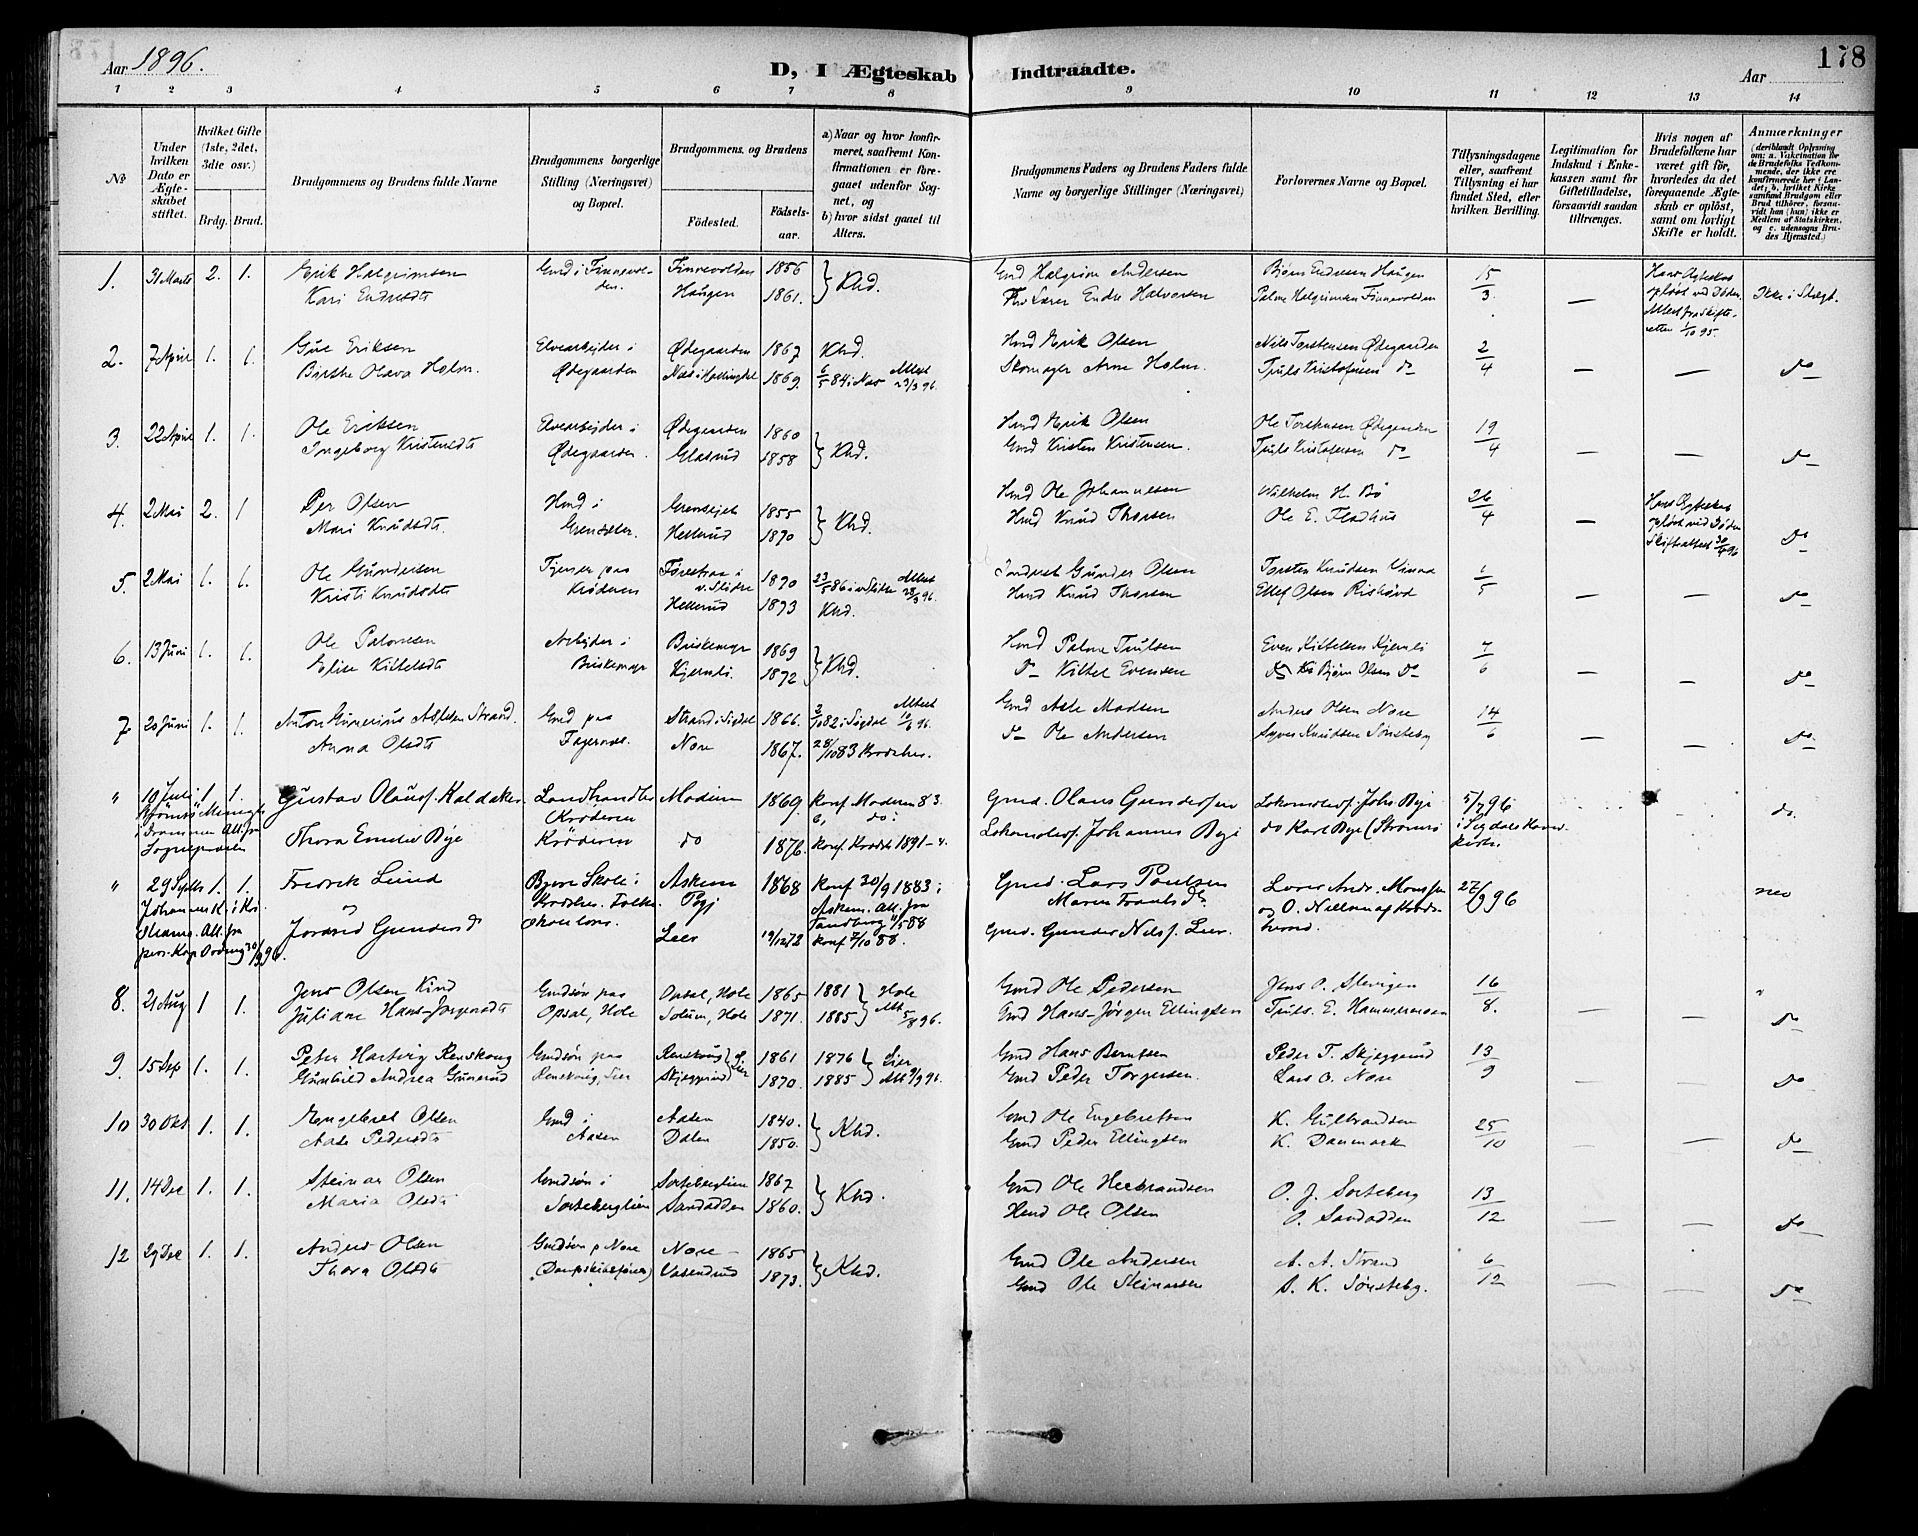 Aar 1896.
D, I Ægteskab Indtraadte.
Aar
178
1 2 3 4 5 6 7 8 9 10 11 12 13 14
No
Under hvilken Dato er Ægteskabet stiftet.
Hvilket Gifte (1ste, 2det, 3die osv.)
Brdg. Brud.
Brudgommens og Brudens fulde Navne
Brudgommens borgerlige Stilling (Næringsvei) og Bopæl.
Brudgommens og Brudens
Fødested.
Fødselsaar.
a) Naar og hvor konfirmeret, saafremt Konfirmationen er foregaaet udenfor Sognet, og
b) hvor sidst gaaet til Alters.
Brudgommens Faders og Brudens Faders fulde Navne og borgerlige Stillinger (Næringsvei)
Forlovernes Navne og Bopæl.
Tillysningsdagene eller, saafremt Tillysning ei har fundet Sted, efter hvilken Bevilling.
Legitimation for Indskud i Enkekassen samt for Giftetilladelse, forsaavidt saadan tiltrænges.
Hvis nogen af Brudefolkene har været gift før, hvorledes da det foregaaende Ægteskab er opløst, samt om lovligt Skifte er holdt.
Anmærkninger (deriblandt Oplysning om: a. Vakcination for de Brudefolks Vedkommende, der ikke ere konfirmerede her i Landet; b. hvilket Kirkesamfund Brudgom eller Brud tilhører, forsaavidt han (hun) ikke er Medlem af Statskirken, og c. udensogns Brudes Hjemsted.)
1. 31 Marts 2. 1. Erik Halgrimsen Gmd i Finnevolden. Finnevolden 1856 } Khd. Gmd Halgrim Andersen Bjørn Endresen Haugen 15/3 — Hans Ægteskab opløst ved Døden. Attest fra Skifteretten 1/10 95. Ikke i Slægt.
Kari Endresdt Haugen 1861. Lærer Endre Halvorsen Palme Halgrimsen Finnevolden
2. 7 April 1. 1. Eriksen Elvearbejder i Ødegaarden 1867 Khd. Hmd Erik Olsen Nils Torstensen Ødegaarden 2/4 — — do
Birthe Olava Holm. Ødegaarden Næs i Hallingdal 1869. 6/5 84 i Næs Attest 23/3 96. Skomager Arne Holm. Truls Kristofersen do
3. 22 April 1. 1. Ole Eriksen Elvearbejder i Ødegaarden 1860 } Khd. Hmd Erik Olsen Ole Torstensen Ødegaarden 19/4 — — do
Ingeborg Kristensdt Ødegaarden. Glasrud 1858 Gmd Kristen Kristensen. Truls Kristofersen do
4. 2 Mai 2. 1 Per Olsen Hmd i 1855 } Khd. Hmd Ole Johannesen Wilhelm H. Bø 26/4 — Hans Ægteskab opløst ved Døden Skifteattest 30/4 96 do
Mari Knudsdt. Hellerud 1870 Hmd Knud Thorsen Ole E. Fladhus
5. 2 Mai 1. 1. Ole Gundersen Tjener paa i v. Slidre 1870 23/5 86 i v. Slidre Attest 96. Inderst Gunder Olsen Torsten Knudsen Vinna 1/5 — — do
Kristi Knudsdt Krøderen Hellerud 1873 Khd. Hmd Knud Thorsen Ellef Olsen
6. 13 Juni 1. 1. Ole Palmesen Arbejder i Briskemyr 1869 } Khd. Hmd Palme Trulsen Even Kittelsen Kjernli 7/6 — — do
Elise Kittelsdt Briskemyr Kjernli. 1872 do Kittel Evensen Bjørn Olsen do
7 20 Juni 1. 1. Anton Gunerius Aslesen Strand. Gmd paa Strand i Sigdal 1866. 2/10 82 i Sigdal Attest 10/6 96. Gmd Asle Madsen Anders Olsen Nore 14/6 — — do.
Anna Olsdt Fagernæs. Nore 1867. 28/10 83 Krødsher. do Ole Andersen Syver Knudsen Sønsteby
" 10 Juli 1 1. Gustav Olausf. Kaldaker Landhandler Modum 1869 Konf. Modum 83. Gmd. Olaus Gundersen Lokomotivf. Johs Bye 5/7 96 do.
Thora Emilie Bye Krøderen do 1876. Konf. Krødsh 1891 Lokomotivf. Johannes Bye do Karl Bye (Strømsø i Sigdals Hovedkirke.
" 29 Septbr 1. 1. Fredrik Lund Askim 1868 Konf 30/9 1883 i Askim. Att. fra Tandberg 11/5 88 Gmd. Lars Paulsen Lærer Andr. Monssen 27/9 96 nei
Johannes K. i Kristiania. Att. fra pers. Kap. Gundersd Lier 19/12 72 Konf 7/10 88. Gmd. Gunder Nilsf. Lier.
8. 21 Aug 1 1. Jens Olsen Kind Gmdsøn paa Opsal, Hole 1865 1881 } Hole Att 5/8 96. Gmd Ole Pedersen Jens O. Slevigen 16/8. "
Juliane Hans-Jørgensdt Opsal, Hole Solum, Hole 1871. 1885 Gmd Hans-Jørgen Ellingsen Truls. E. Hammersengen — — do
9. 15 Sep 1. 1. Peter Hartvig Renskoug Gmdsøn paa Renskoug } Lier 1861 1876 } Lier Att 9/9 96. Gmd Hans Berntsen Peder T. Skjeggerud 13/9 — — do
Gunhild Andrea Gunerud Renskoug, Lier Skjeggerud 1870. 1885 Gmd Peder Torgersen. Lars O. Nore
10 30 Okt 1. 1. Engebret Olsen Gmd i Aasen 1840. } Khd. Gmd Ole Engebretsen K. Gulbrandsen 25/10 — — do
Aase Pedersdt Aasen Dalen 1850. Gmd Peder Ellingsen K. Danmark
11. 14 Dec 1. 1. Steinar Olsen Gmdsøn i Sorteberglien 1867 } Khd. Gmd Ole Herbrandsen O. J. Sorteberg 13/12 — — do
Maria Olsdt Sorteberglien Sandodden 1860. Hmd Ole Olsen O. Sandodden
12 29 Dec 1. 1. Anders Olsen Gmdsøn p Nore Nore 1865 } Khd. Gmd Ole Andersen A. A. Strand 6/12 — — do
Thora Olsdt (Dampskibsfører) Vasendrud 1873. Gmd Ole Steinarsen S. K. Sønsteby.